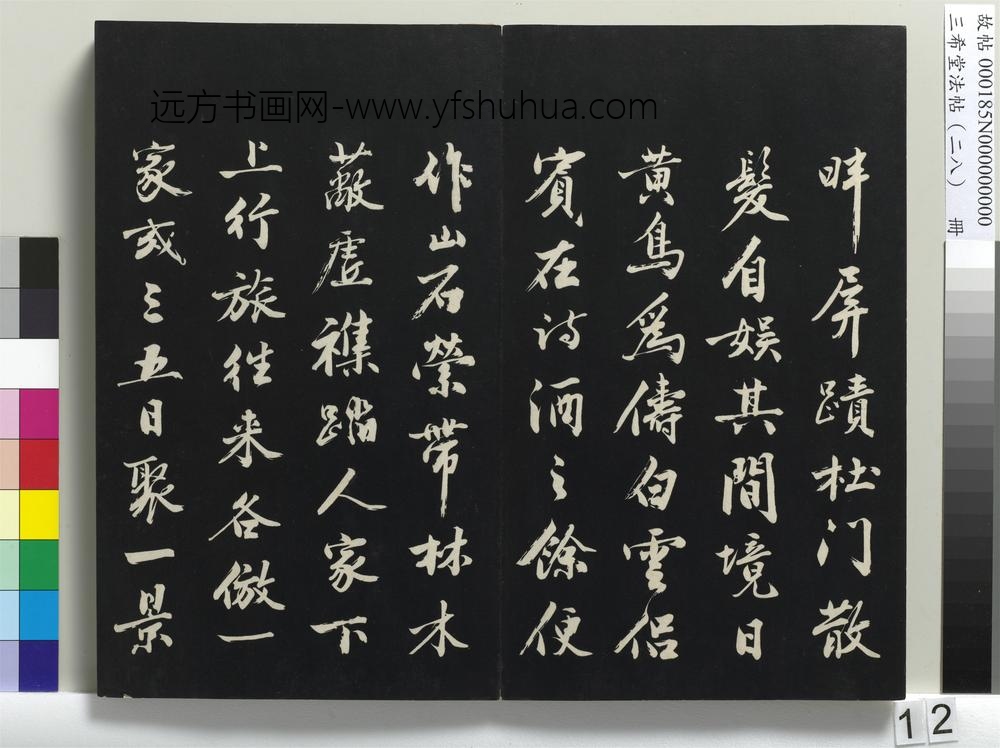 远方书画网-www.yfshuhua.com
畔屏蹟杜门散
髮自娱其間境日
黄鳥爲儔白雲侣
賓在詩酒之餘便
作山石縈帶林木
蔽虚襍踏人家下
上行旅徃来各倣一
家或三五日聚一景
故帖 000185N000000000
三希堂法帖(二八) 冊
12